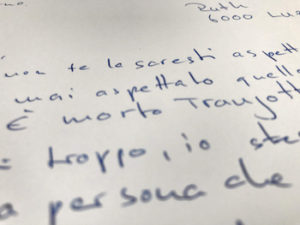 Ruth
6000 Luz
non te lo saresti aspett
mai aspettato quello
È morto Tranzott
troppo, io ste
a persona che